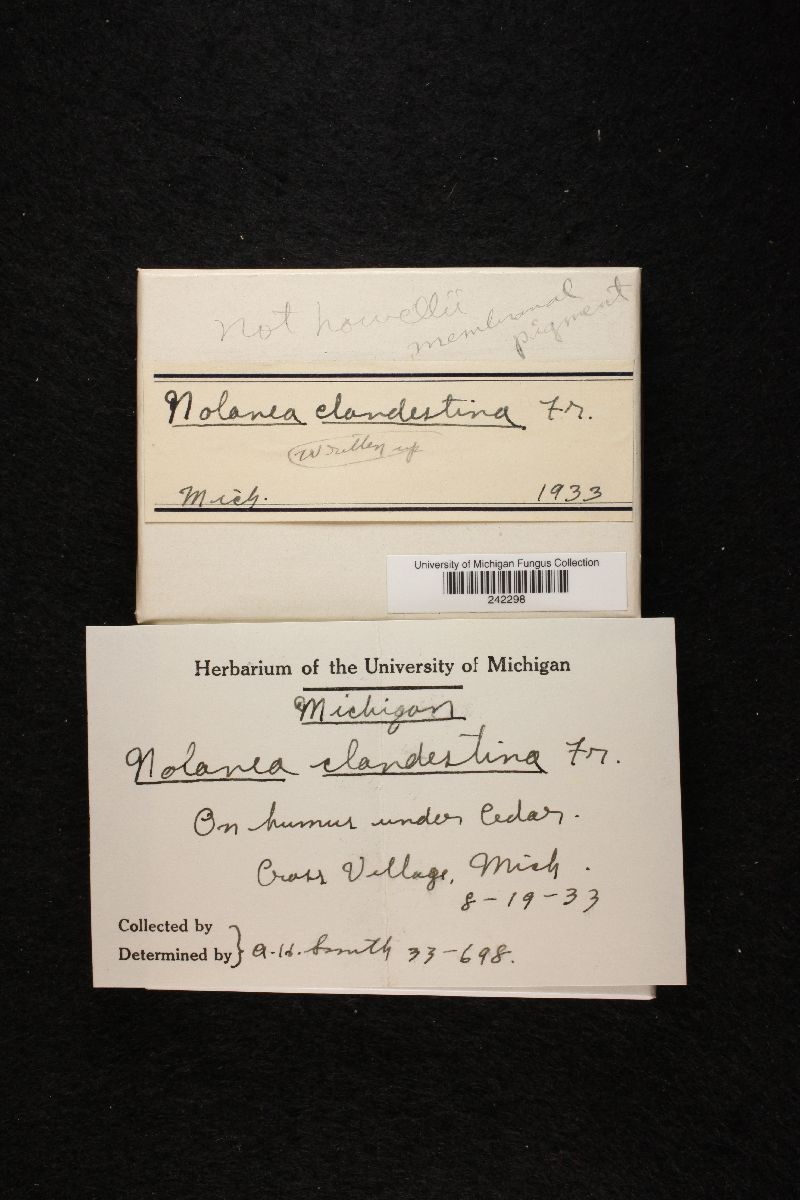 Not howellii
membranal
pigment
Nolanea clandestina Fr.
Written up
Mich. 1933
University of Michigan Fungus Collection
242298
Herbarium of the University of Michigan
Michigan
Nolanea clandestina Fr.
On humus under Cedar.
Cross Village, Mich.
8-19-33
Collected by
Determined by } A.H. Smith 33-698.